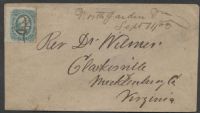 North Garden Va
Sept 14/63
Rev Dr Wilmer
Clarksville
Mecklenburg Co
Virginia